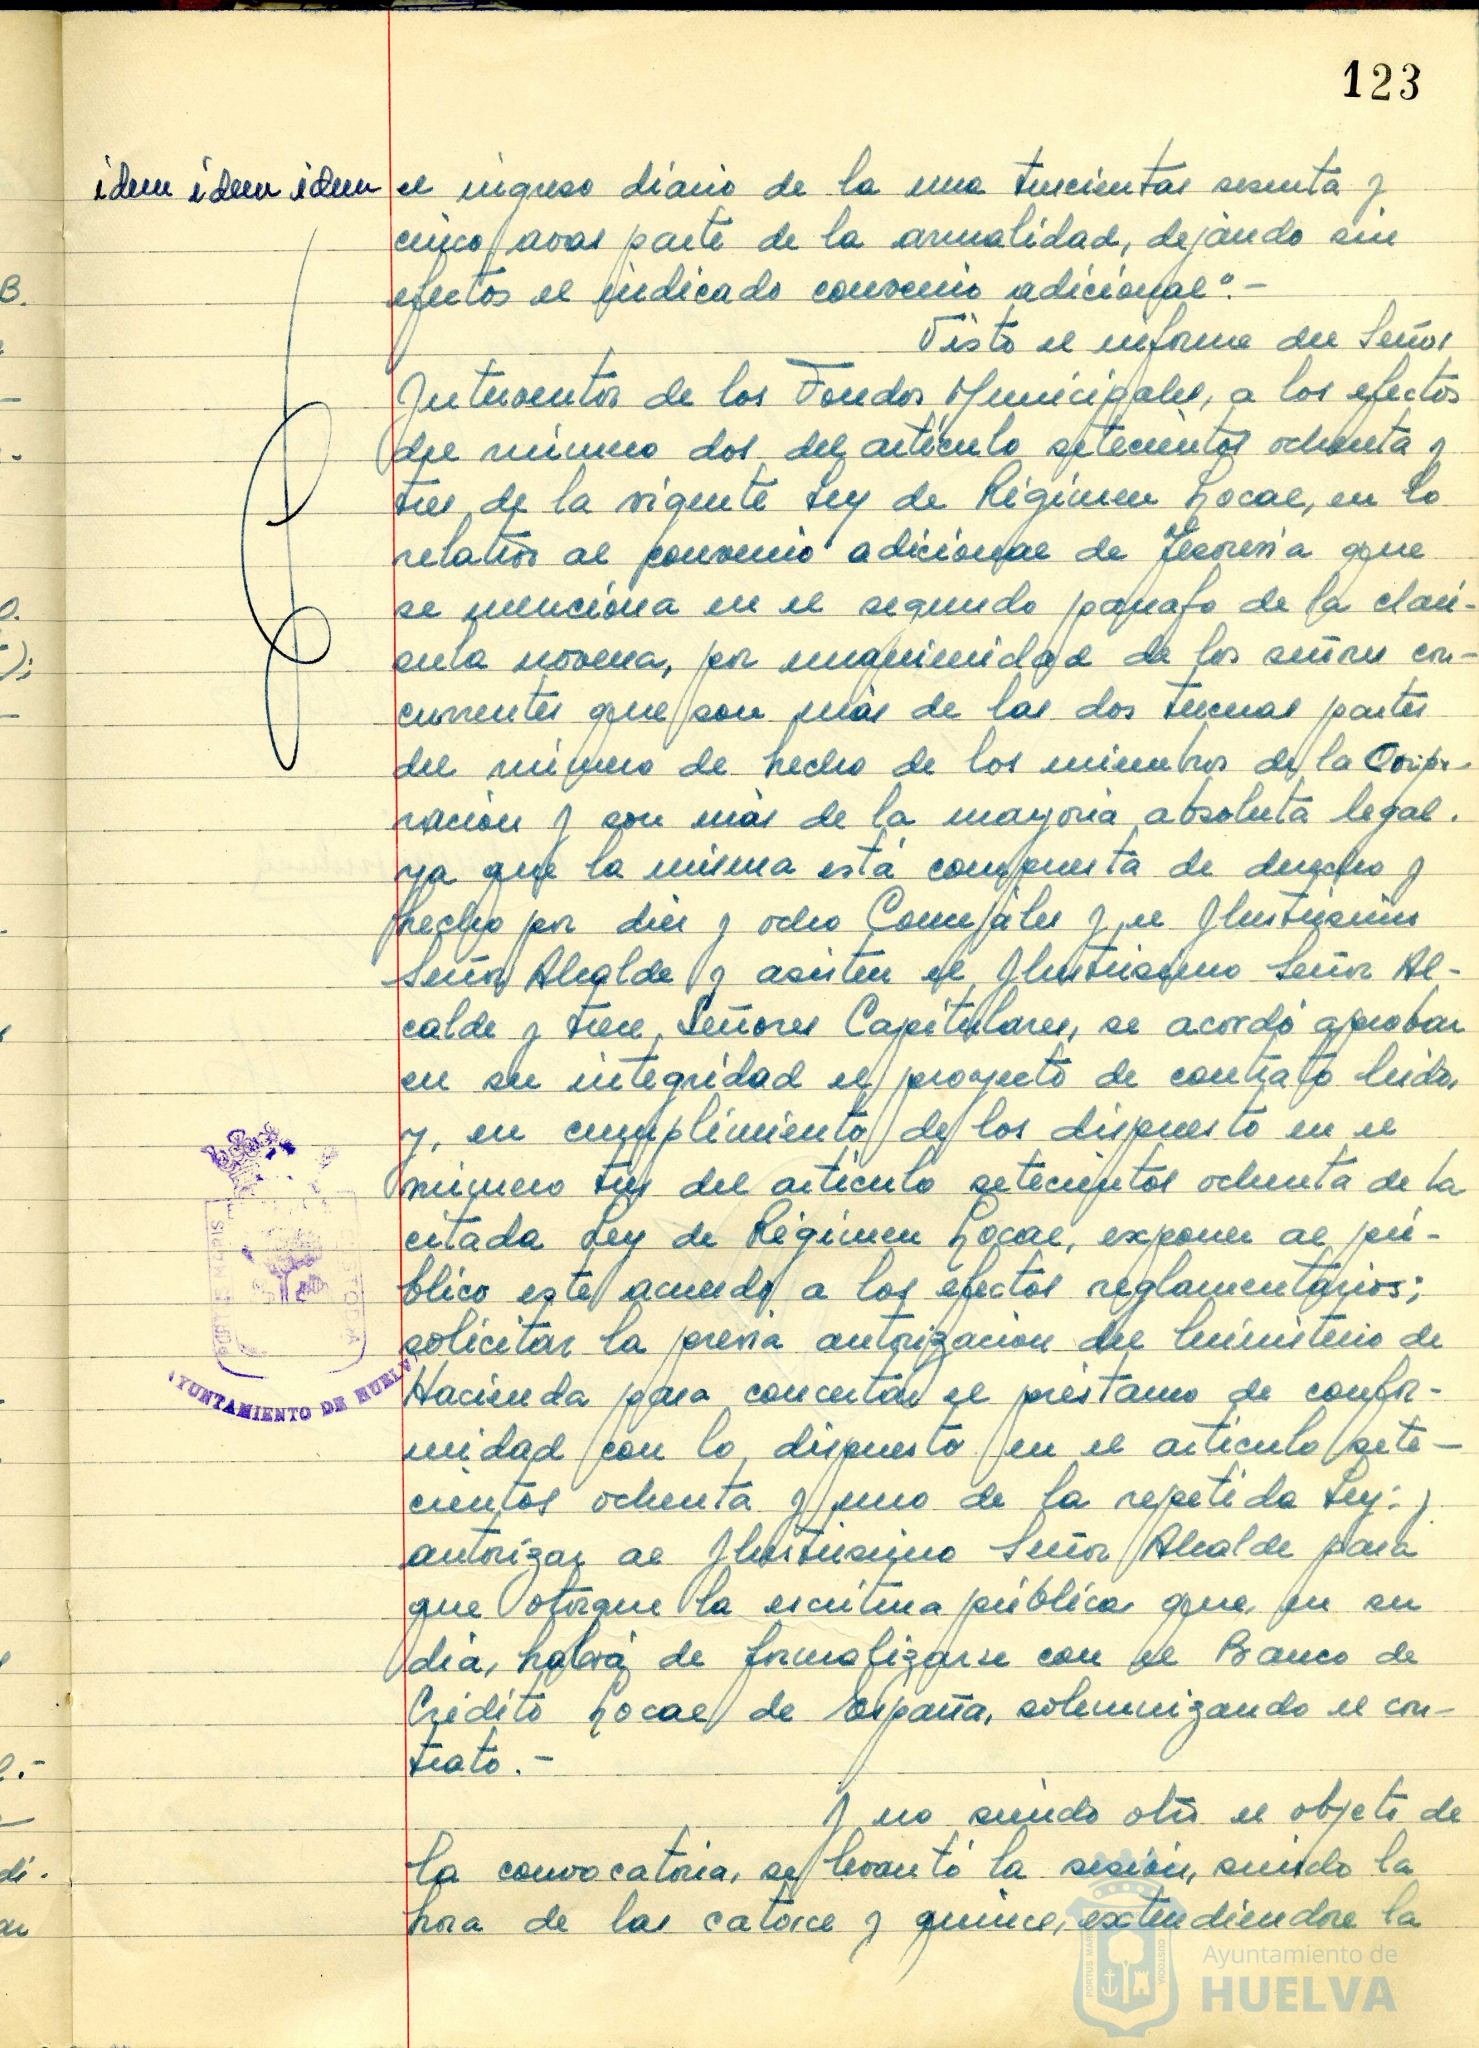 123
idem idem idem
el ingreso diario de la una trescientas sesenta y
cinco avas parte de la anualidad, dejando sin
efectos el indicado convenio adicional".-
Visto el informe del Señor
Interventor de los Fondos Municipales, a los efectos
del número dos del artículo setecientos ochenta y
tres de la vigente Ley de Régimen Local, en lo
relativo al convenio adicional de Tesorería que
se menciona en el segundo párrafo de la cláu-
sula novena, por unanimidad de los señores con-
currentes que son más de las dos terceras partes
del número de hecho de los miembros de la Corpo-
ración y son más de la mayoría absoluta legal.
ya que la misma está compuesta de derecho y
hecho por diez y ocho Concejales y el Ilustrísimo
Señor Alcalde y asisten el Ilustrísimo Señor Al-
calde y trece Señores Capitulares, se acordó aprobar
en su integridad el proyecto de contrato leido,
y, en cumplimiento de los dispuesto en el
número tres del artículo setecientos ochenta de la
citada Ley de Régimen Local, exponer al pú-
blico este acuerdo a los efectos reglamentarios;
solicitar la previa autorización del Ministerio de
Hacienda para concertar el préstamo de confor-
midad con lo dispuesto en el artículo sete-
cientos ochenta y uno de la repetida Ley: y
autorizar al Ilustrísimo Señor Alcalde para
que otorgue la escritura pública que, en su
día, habrá de formalizarse con el Banco de
Crédito Local de España, solemnizando el con-
trato.-
Y no siendo otro el objeto de
la convocatoria, se levantó la sesión, siendo la
hora de las catorce y quince, extendiendose la
PORTUS MARIS CUSTODIA
AYUNTAMIENTO DE HUELVA
PORTUS MARIS CUSTODIA
Ayuntamiento de
HUELVA